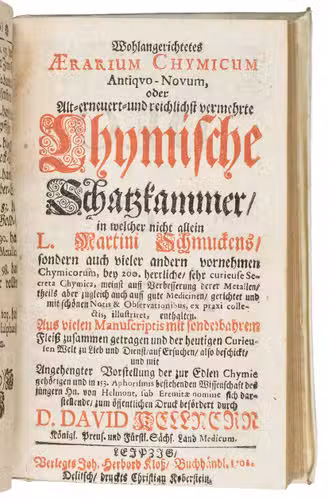 Wohlangerichtetes
ÆRARIUM CHYMICUM
Antiqvo-Novum,
oder
Alt-erneuert-und reichlichst vermehrte
Chymische
Schatzkammer/
in welcher nicht allein
L. Martini Schmuckens/
sondern auch vieler andern vornehmen
Chymicorum, bey 200. herrliche/ sehr curieuse Se-
creta Chymica, meinst auff Verbesserung derer Metallen/
theils aber zugleich auch auff gute Medicinen/ gerichtet und
mit schönen Notis & Observationibus, ex praxi colle-
ctis, illustriret, enthalten.
Aus vielen Manuscriptis mit sonderbahrem
Fleiß zusammen getragen und der heutigen Curieu-
sen Welt zu Lieb und Dienst/auf Ersuchen/ also beschickt/
und mit
Angehengter Vorstellung der zur Edlen Chymie
gehörigen und in 153. Aphorismis bestehenden Wissenschaft des
jüngern Hn. von Helmont, sub Eremitæ nomine sich dar-
stellende; zum öffentlichen Druck befördert durch
D. DAVID KELLNERN
Königl. Preuß. und Fürstl. Sächs. Land Medicum.
LEIPZIG/
Verlegts Joh. Herbord Kloß/ Buchhändl.
Delitsch/ druckts Christian Koberstein.